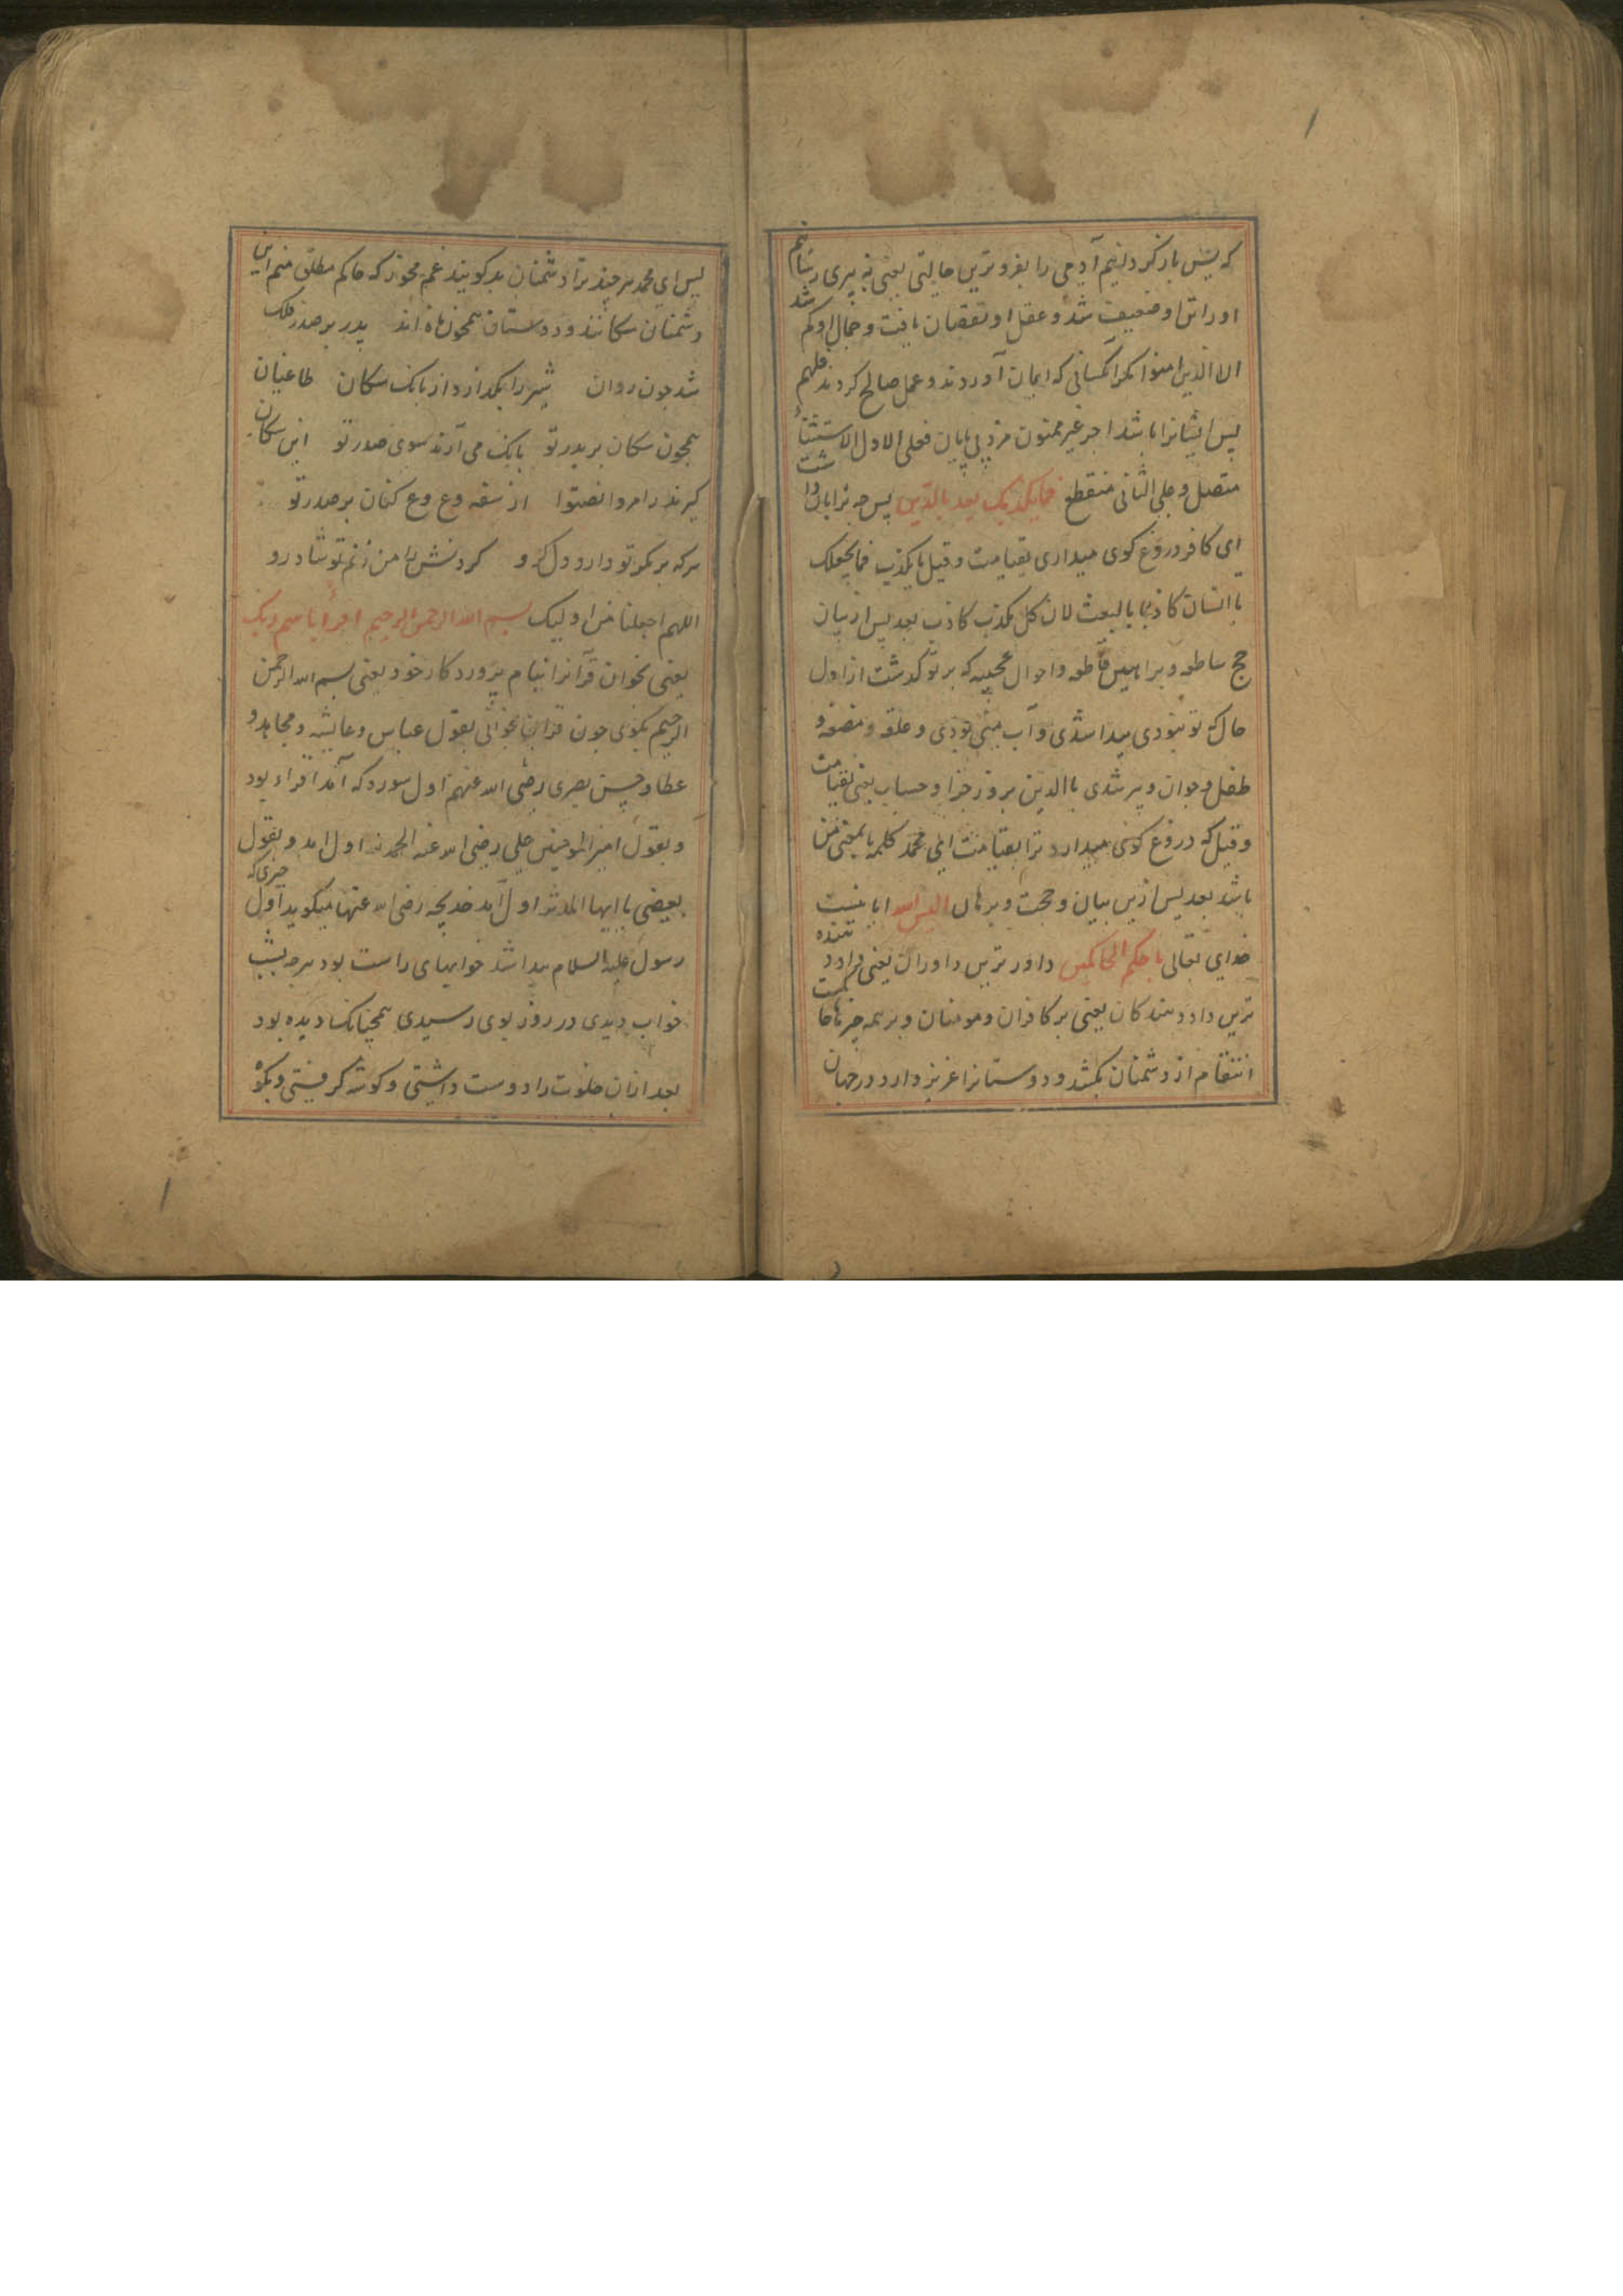 که پس باز کردانیم آدمی را بفروترین حالتی یعنی به پیری رسانیم
او را تن او ضعیف شد و عقل او نقصان یافت و جمال او کم شد
الا الذین امنوا مکر آنکسانی که ایمان آوردند و عمل صالح کردند فلهم
پس ایشانرا باشد اجر غیر ممنون مزد بی پایان فعلی الاول الاستثناء
متصل و علی الثانی منقطع فما یکذبک بعد بالدین پس چه ترا
ای کافر دروغ کوی میداری بقیامت و قیل ما یکذب فما یجعلک
یا انسان کاذبا بالبعث لان کل مکذب کاذب بعد پس از بیان
حج ساطعه و براهین قاطعه و احوال عجیبه که بر تو کذشت از اول
حال که تو نبودی پیدا شدی و آب منی بودی و علقه و مضغه و
طفل و جوان و پیر شدی باالدین بروز جزا و حساب یعنی بقیامت
و قیل که دروغ کوی میدارد ترا بقیامت ای محمد کلمه ما بمعنی من
باشد بعد پس ازین بیان و حجت و برهان الیس الله ایا نیست
خدای تعالی باحکم الحاکمین داور ترین داوران یعنی
ترین داد دهندکان یعنی بر کافران و مومنان و بر همه چیزها
انتقام از دشمنان بکشد و دوستانرا عزیز دارد در جهان
پس ای محمد هر چند ترا دشمنان بد کویند غم مخور که حاکم مطلق منم این
دشمنان سکانند و دوستان همچون ماه اند بدر بر صدر فلک
شد چون روان شیر را نکذارد از بانک سکان طاعنان
همچون سکان بر بدر تو بانک می آرند سوی صدر تو این سکان
کرند ز امر وانصتوا از سفه وع وع کنان بر صدر تو
هر که بر مکر تو دارد دل کرو کردنش را من زنم تو شاد رو
اللهم اجعلنا من اولیک بسم الله الرحمن الرحیم اقرأ باسم ربک
یعنی بخوان قرآنرا بنام پروردکار خود یعنی بسم الله الرحمن
الرحیم بکوی چون قران بخوانی بقول عباس و عایشه و مجاهد و
عطا و حسن بصری رضی الله عنهم اول سوره که آمد اقراء بود
و بقول امیر المومنین علی رضی الله عنه الحمد لله اول امد و بقول
بعضی یا ایها المدثر اول آمد خدیجه رضی الله عنها میکوید اول چیزی که
رسول علیه السلام پیدا شد خوابهای راست بود هر چه بشب
خواب دیدی در روز بوی رسیدی همچنانک دیده بود
بعد ازان خلوت را دوست داشتی و کوشه کرفتی و بکوه